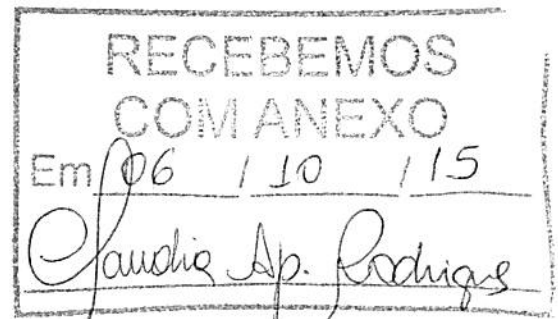 RECEBEMOS
COM ANEXO
Em 06 / 10 / 15
Claudia Ap. Rodrigues